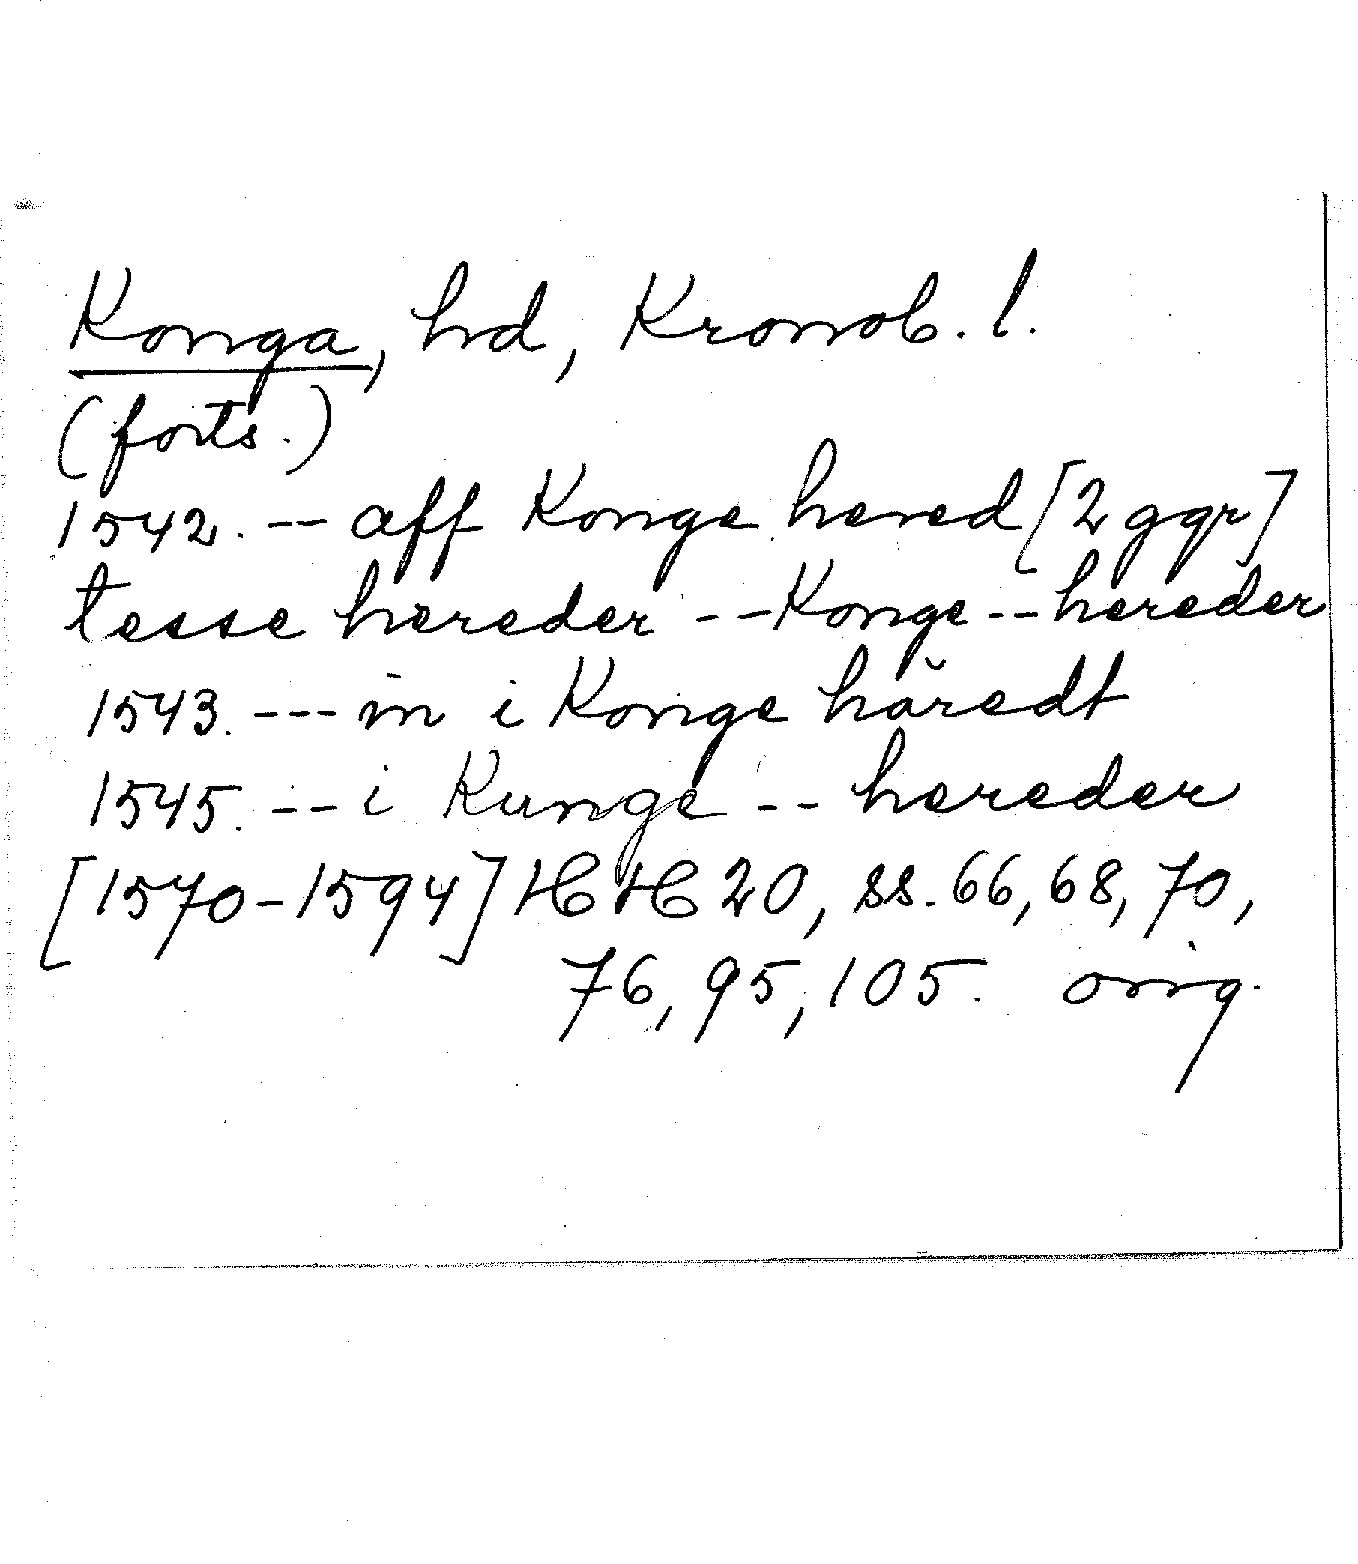 Konga, hd, Kronob. l.
(forts.)
1542. -- aff Konge hered [2 ggr]
tesse hereder -- Konge -- hereder
1543. --- in i Konge häredt
1545. -- i Kunge -- hereder
[1570-1594] HH 20, ss. 66, 68, 70,
76, 95, 105. orig.